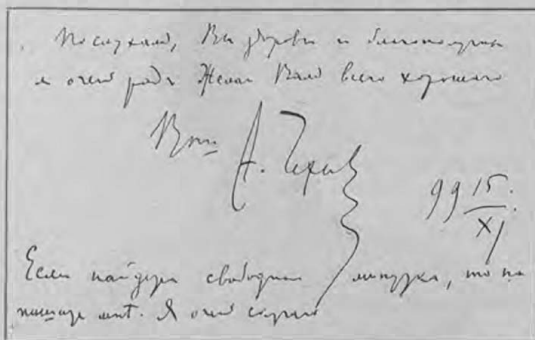 По слухам, Вы здоровы и благополучны
я очень рад. Желаю Вам всего хорошего
Ваш А. Чехов
99 15/XI.
Если найдется свободная минутка, то на
пишите мне. Я очень скучаю